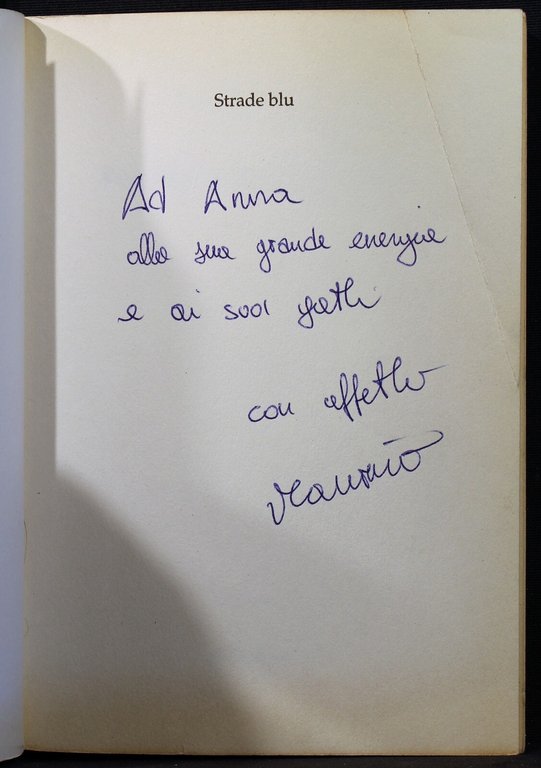 Strade blu
Ad Anna
alla sua grande energia
e ai suoi gatti
con affetto